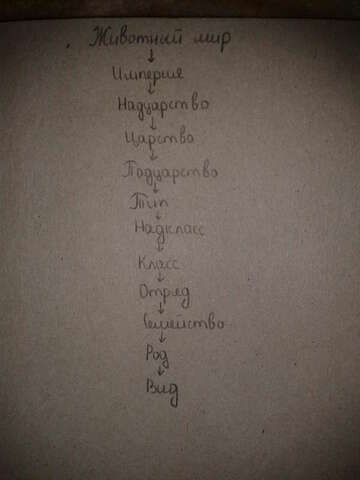 Животный мир
Империя
Надцарство
Царство
Подцарство
Тип
Надкласс
Класс
Отряд
Семейство
Род
Вид